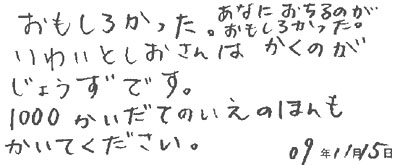 おもしろかった。あなにおちるのが
おもしろかった。
いわいとしおさんは かくのが
じょうずです。
1000かいだてのいえのほんも
かいてください。
09年11月15日